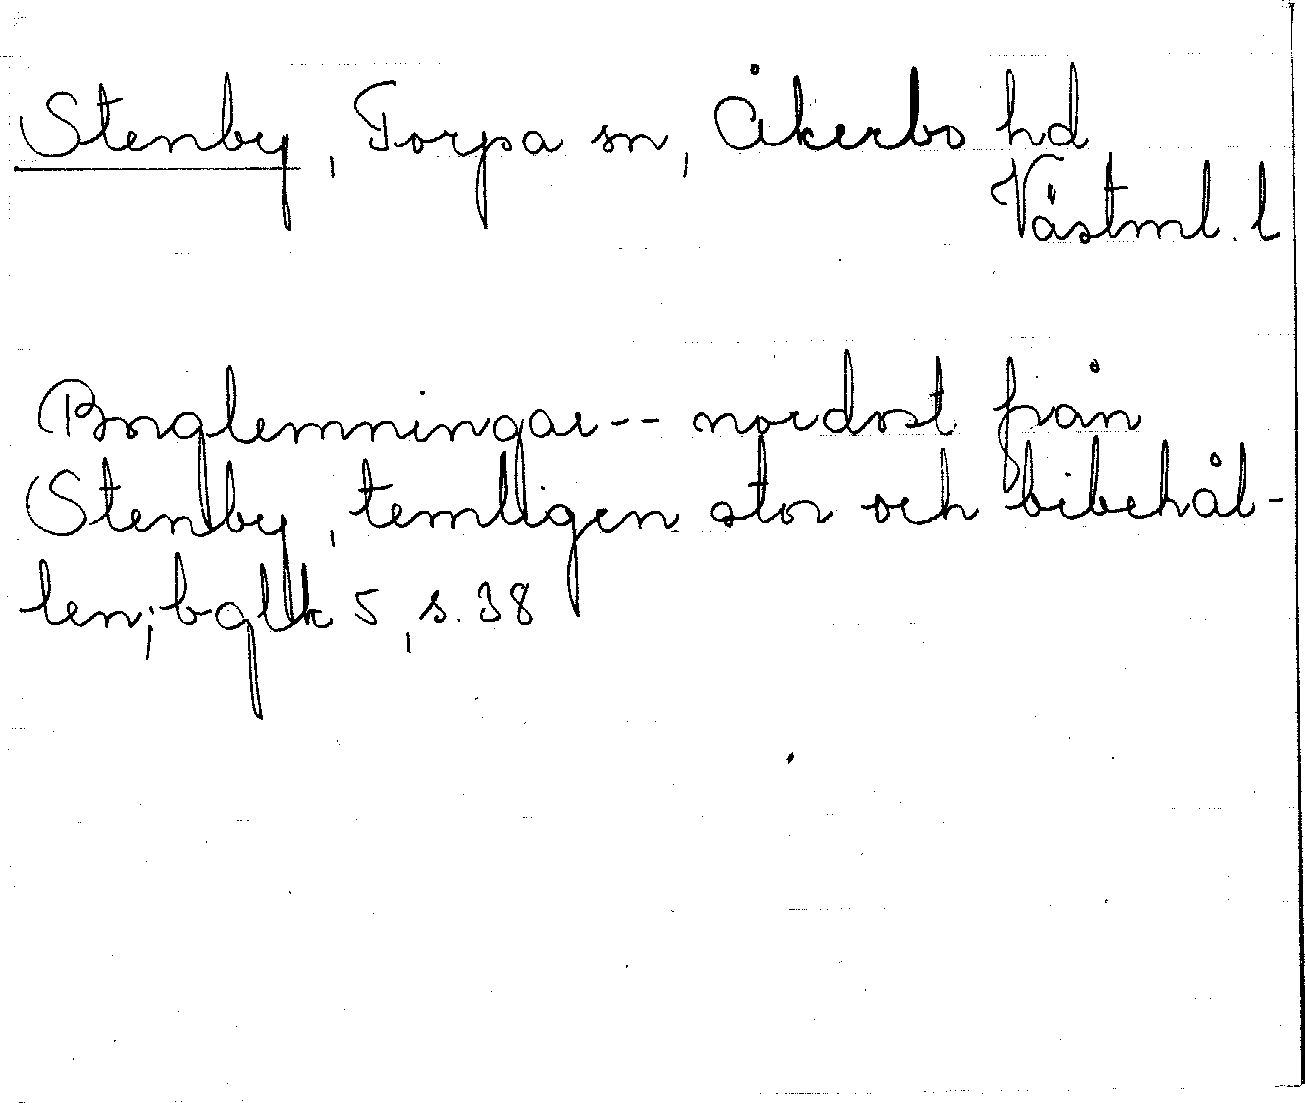 Stenby, Torpa sn, Åkerbo hd
Västml. l
Borglemningar -- nordost från
Stenby, temligen stor och bibehål-
len; bglk 5, s. 38